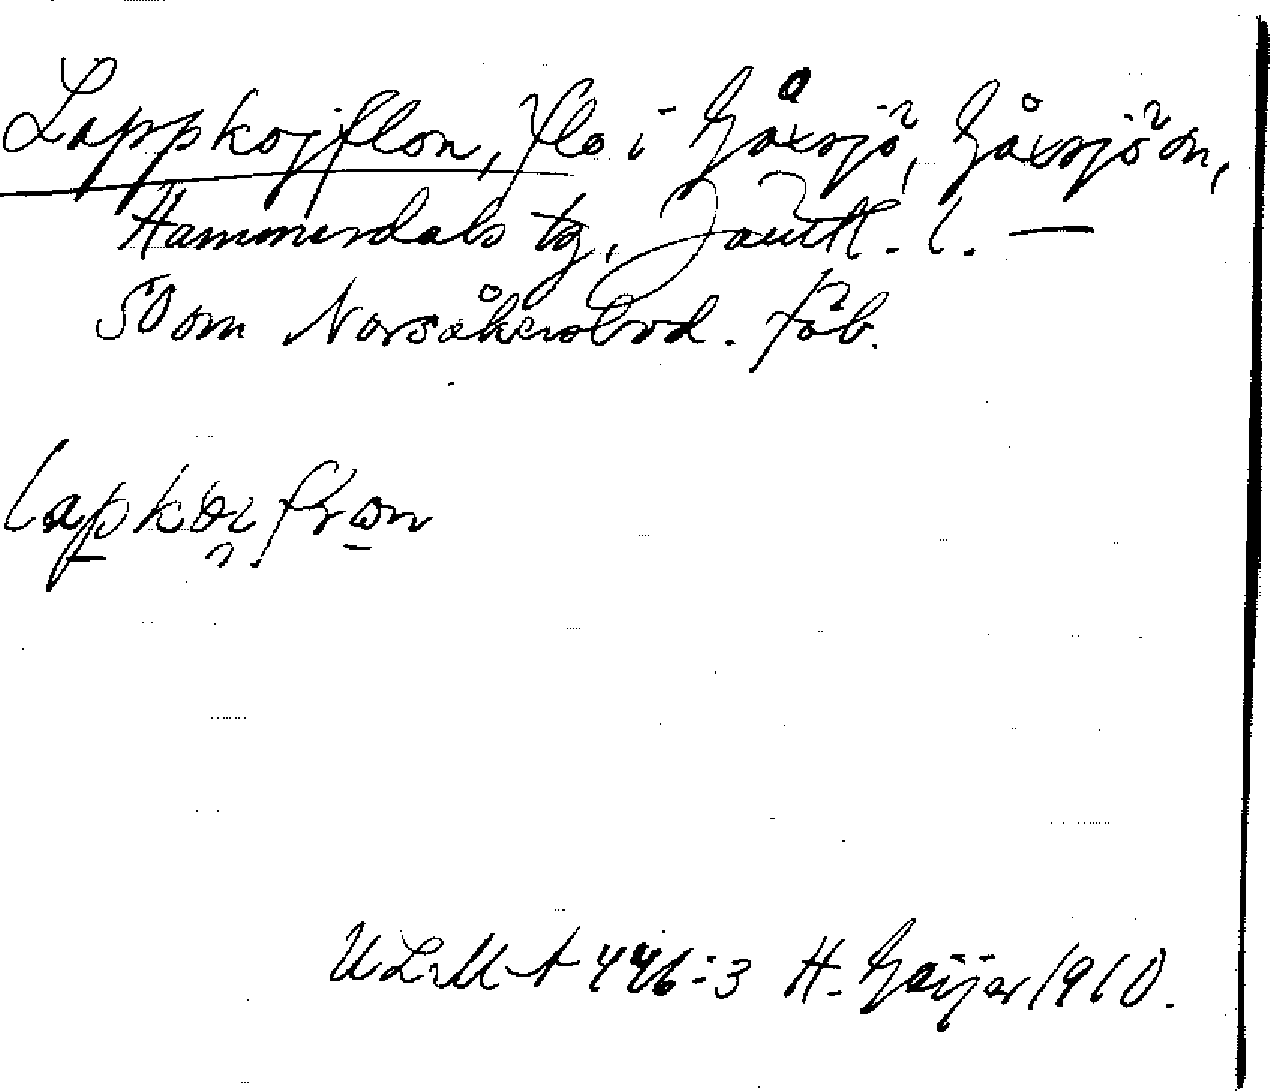 Lappkojflon, flo i Gåxsjö, Gåxsjö sn,
Hammerdals tg, Jämtl. l. —
SO om Norsåkersbod. fäb.
lapkɷi flɷn
ULMA 446:3 H. Geijer 1910.